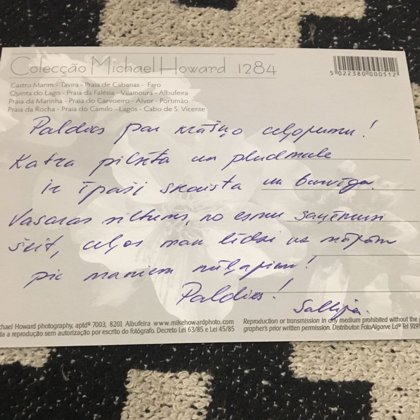 Colecção Michael Howard 1284
5 022380 000512
Castro Marim - Tavira - Praia de Cabanas - Faro
Quinta do Lago - Praia da Falésia - Vilamoura - Albufeira
Praia da Marinha - Praia do Carvoeiro - Alvor - Portimão
Praia da Rocha - Praia do Camilo - Lagos - Cabo de S. Vicente
Paldies par ceļojumu!
Katra pilsēta un pludmale
ir īpaši skaista un burvīga.
Vasaras siltums, no esmu saņēmusi
šeit, ceļos man līdzi uz mājām
pie maniem mīļajiem!
Paldies!
chael Howard photography, aptdº 7003, 8201 Albufeira www.mikehowardphoto.com
a a reprodução sem autorização por escrito do fotógrafo. Decreto Lei 63/85 e Lei 45/85
Reproduction or transmission in any medium prohibited without the p
grapher's prior written permission. Distributor: FotoAlgarve Ldª